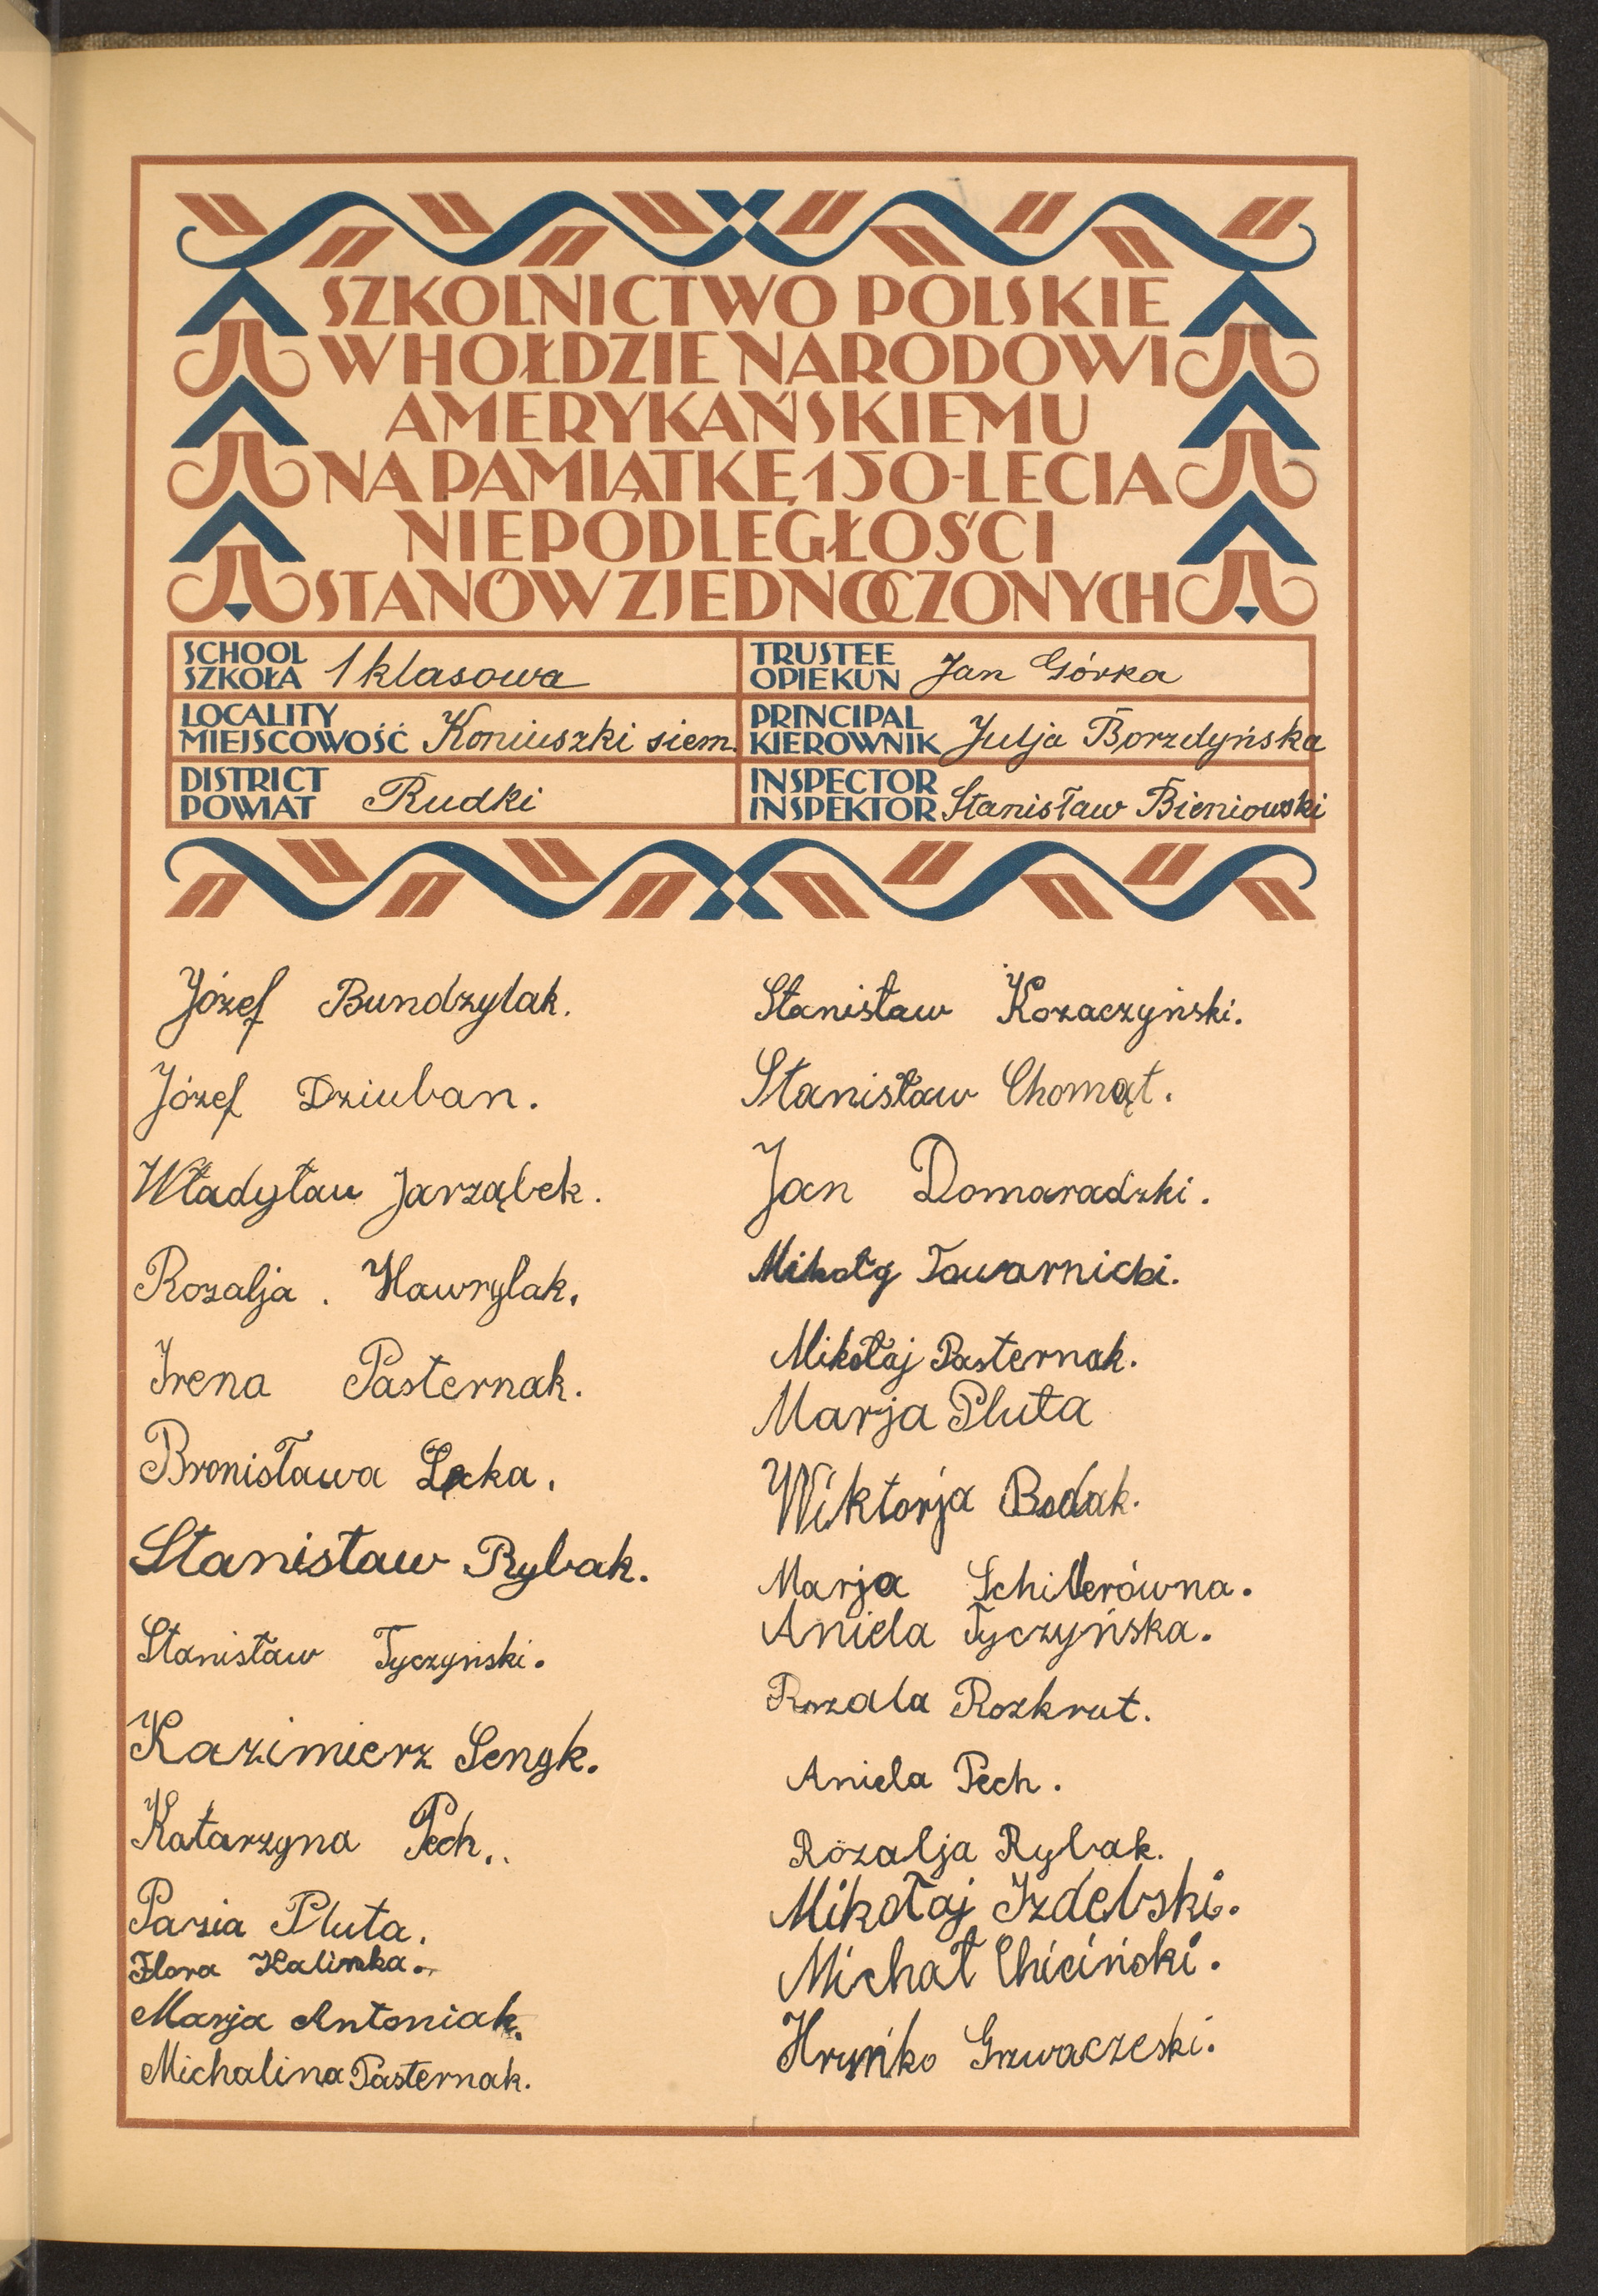 SZKOLNICTWO POLSKIE
W HOŁDZIE NARODOWI
AMERYKAŃSKIEMU
NA PAMIĄTKĘ 150-LECIA
NIEPODLEGŁOŚCI
STANÓW ZJEDNOCZONYCH
SCHOOL
SZKOŁA 1 klasowa
LOCALITY
MIEJSCOWOŚĆ Koniuszki siem.
DISTRICT
POWIAT Rudki
TRUSTEE
OPIEKUN Jan Górka
PRINCIPAL
KIEROWNIK Julja Borzdyńska
INSPECTOR
INSPEKTOR Stanisław Bieniowski
Józef Bundzylak.
Józef Dziuban.
Władyław Jarząbek.
Rozalja . Hawrylak.
Irena Pasternak.
Bronisława Łącka.
Stanisław Rybak.
Stanisław Tyczyński.
Kazimierz Sengk.
Katarzyna Pech..
Pazia Pluta.
Flora Kalinka.
Marja Antoniak.
Michalina Pasternak.
Stanisław Kozaczyński.
Stanisław Chomąt.
Jan Domaradzki.
Towarnicki.
Mikołaj Pasternak.
Marja Pluta
Wiktorja Bodak.
Marja Schillerówna.
Aniela Tyczyńska.
Rozala Rozkrut.
Aniela Pech.
Rozalja Rybak.
Mikołaj Izdebski.
Michał Chiciński.
Hryńko